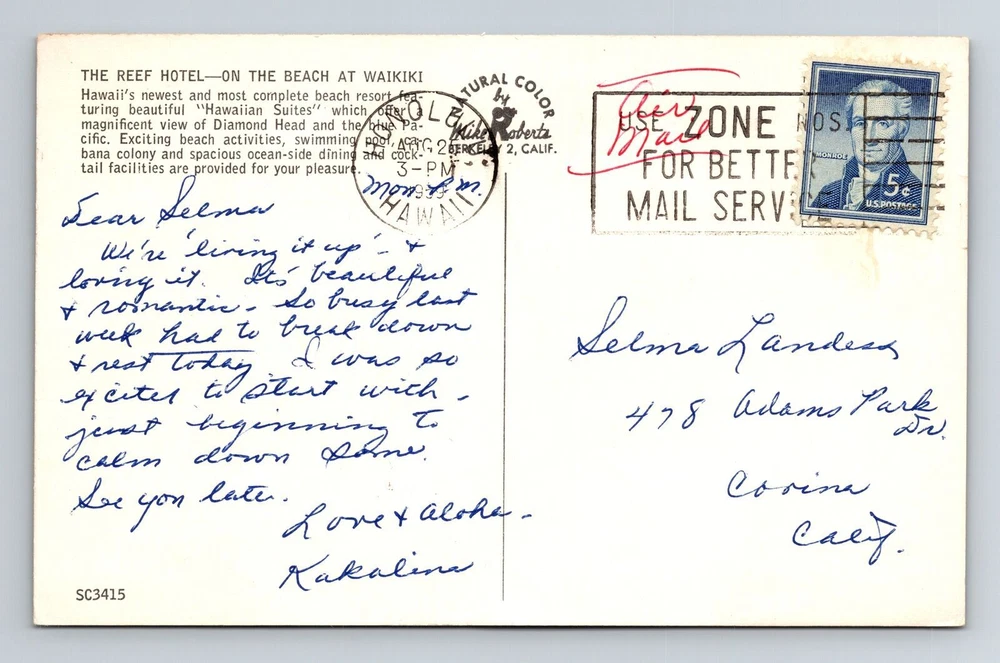 THE REEF HOTEL—ON THE BEACH AT WAIKIKI
Hawaii's newest and most complete beach resort fea-
turing beautiful "Hawaiian Suites" which offer a
magnificent view of Diamond Head and the blue Pa-
cific. Exciting beach activities, swimming pool, ca-
bana colony and spacious ocean-side dining and cock-
tail facilities are provided for your pleasure.
NATURAL COLOR
by
Mike Roberts
BERKELEY 2, CALIF.
AUG 2
3-PM
1959
HAWAII
Air
Mail
USE ZONE NOS.
FOR BETTER
MAIL SERVICE
MONROE
5¢
U.S. POSTAGE
Mon P.M.
Dear Selma
We're 'living it up' - &
loving it. Its beautiful
& romantic - So busy last
week had to break down
& rest today. I was so
excited to start with -
just beginning to
calm down some.
See you later.
Love & Aloha -
Kakalina
Selma Landess
478 Adams Park
Dr.
Covina
Calif.
SC3415